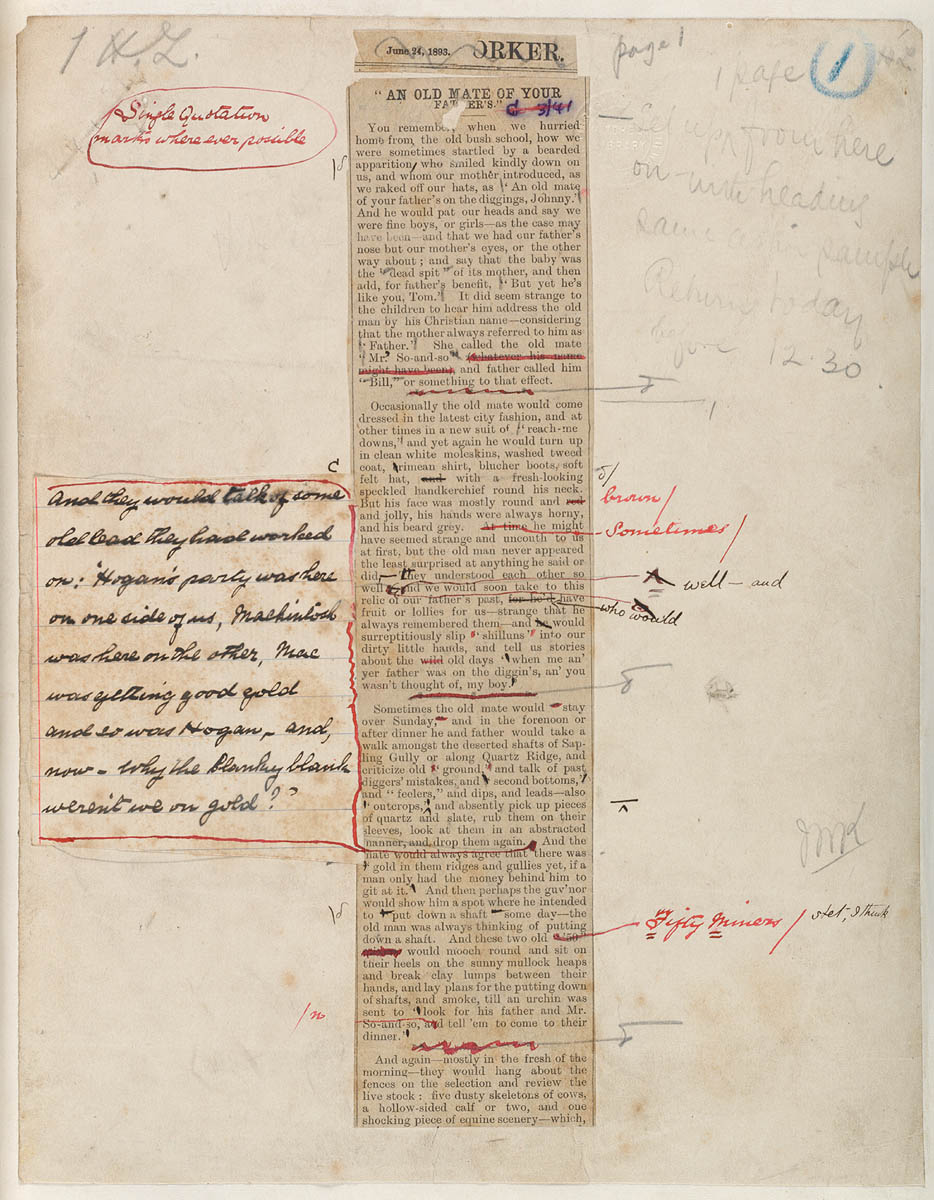 1 H.L.
June 24, 1893. ORKER.
page 1
1 page
1
Single Quotation
marks where ever possible
"AN OLD MATE OF YOUR
FATHER'S."
3/41
from here
on - with heading
same as in sample
Return today
before 12.30.
You remember when we hurried
home from the old bush school, how we
were sometimes startled by a bearded
apparition, who smiled kindly down on
us, and whom our mother introduced, as
we raked off our hats, as "An old mate
of your father's on the diggings, Johnny."
And he would pat our heads and say we
were fine boys, or girls—as the case may
have been—and that we had our father's
nose but our mother's eyes, or the other
way about; and say that the baby was
the "dead spit" of its mother, and then
add, for father's benefit, "But yet he's
like you, Tom." It did seem strange to
the children to hear him address the old
man by his Christian name—considering
that the mother always referred to him as
"Father." She called the old mate
"Mr. So-and-so" (whatever his name
might have been) and father called him
"Bill," or something to that effect.
Occasionally the old mate would come
dressed in the latest city fashion, and at
other times in a new suit of "reach-me
downs," and yet again he would turn up
in clean white moleskins, washed tweed
coat, Crimean shirt, blucher boots, soft
felt hat, and with a fresh-looking
speckled handkerchief round his neck.
But his face was mostly round and red
and jolly, his hands were always horny,
and his beard grey. At time he might
have seemed strange and uncouth to us
at first, but the old man never appeared
the least surprised at anything he said or
did—they understood each other so
well—and we would soon take to this
relic of our father's past, for he'd have
fruit or lollies for us—strange that he
always remembered them—and he would
surreptitiously slip "shilluns" into our
dirty little hands, and tell us stories
about the wild old days "when me an'
yer father was on the diggin's, an' you
wasn't thought of, my boy."
brown /
Sometimes /
well — and
who would
And they would talk of some
old lead they had worked
on: "Hogan's party was here
on one side of us, Mackintosh
was here on the other, Mac
was getting good gold
and so was Hogan, and,
now - why the blanky blank
weren't we on gold?"
Sometimes the old mate would stay
over Sunday, and in the forenoon or
after dinner he and father would take a
walk amongst the deserted shafts of Sap-
ling Gully or along Quartz Ridge, and
criticize old "ground," and talk of past
diggers' mistakes, and second bottoms,
and "feelers," and dips, and leads—also
outcrops, and absently pick up pieces
of quartz and slate, rub them on their
sleeves, look at them in an abstracted
manner, and drop them again. And the
mate would always agree that there was
gold in them ridges and gullies yet, if a
man only had the money behind him to
git at it. And then perhaps the guv'nor
would show him a spot where he intended
to put down a shaft some day—the
old man was always thinking of putting
down a shaft. And these two old "50
would mooch round and sit on
their heels on the sunny mullock heaps
and break clay lumps between their
hands, and lay plans for the putting down
of shafts, and smoke, till an urchin was
sent to "look for his father and Mr.
So-and-so, and tell 'em to come to their
dinner."
Fifty Miners / stet, I think
And again—mostly in the fresh of the
morning—they would hang about the
fences on the selection and review the
live stock: five dusty skeletons of cows,
a hollow-sided calf or two, and one
shocking piece of equine scenery—which,